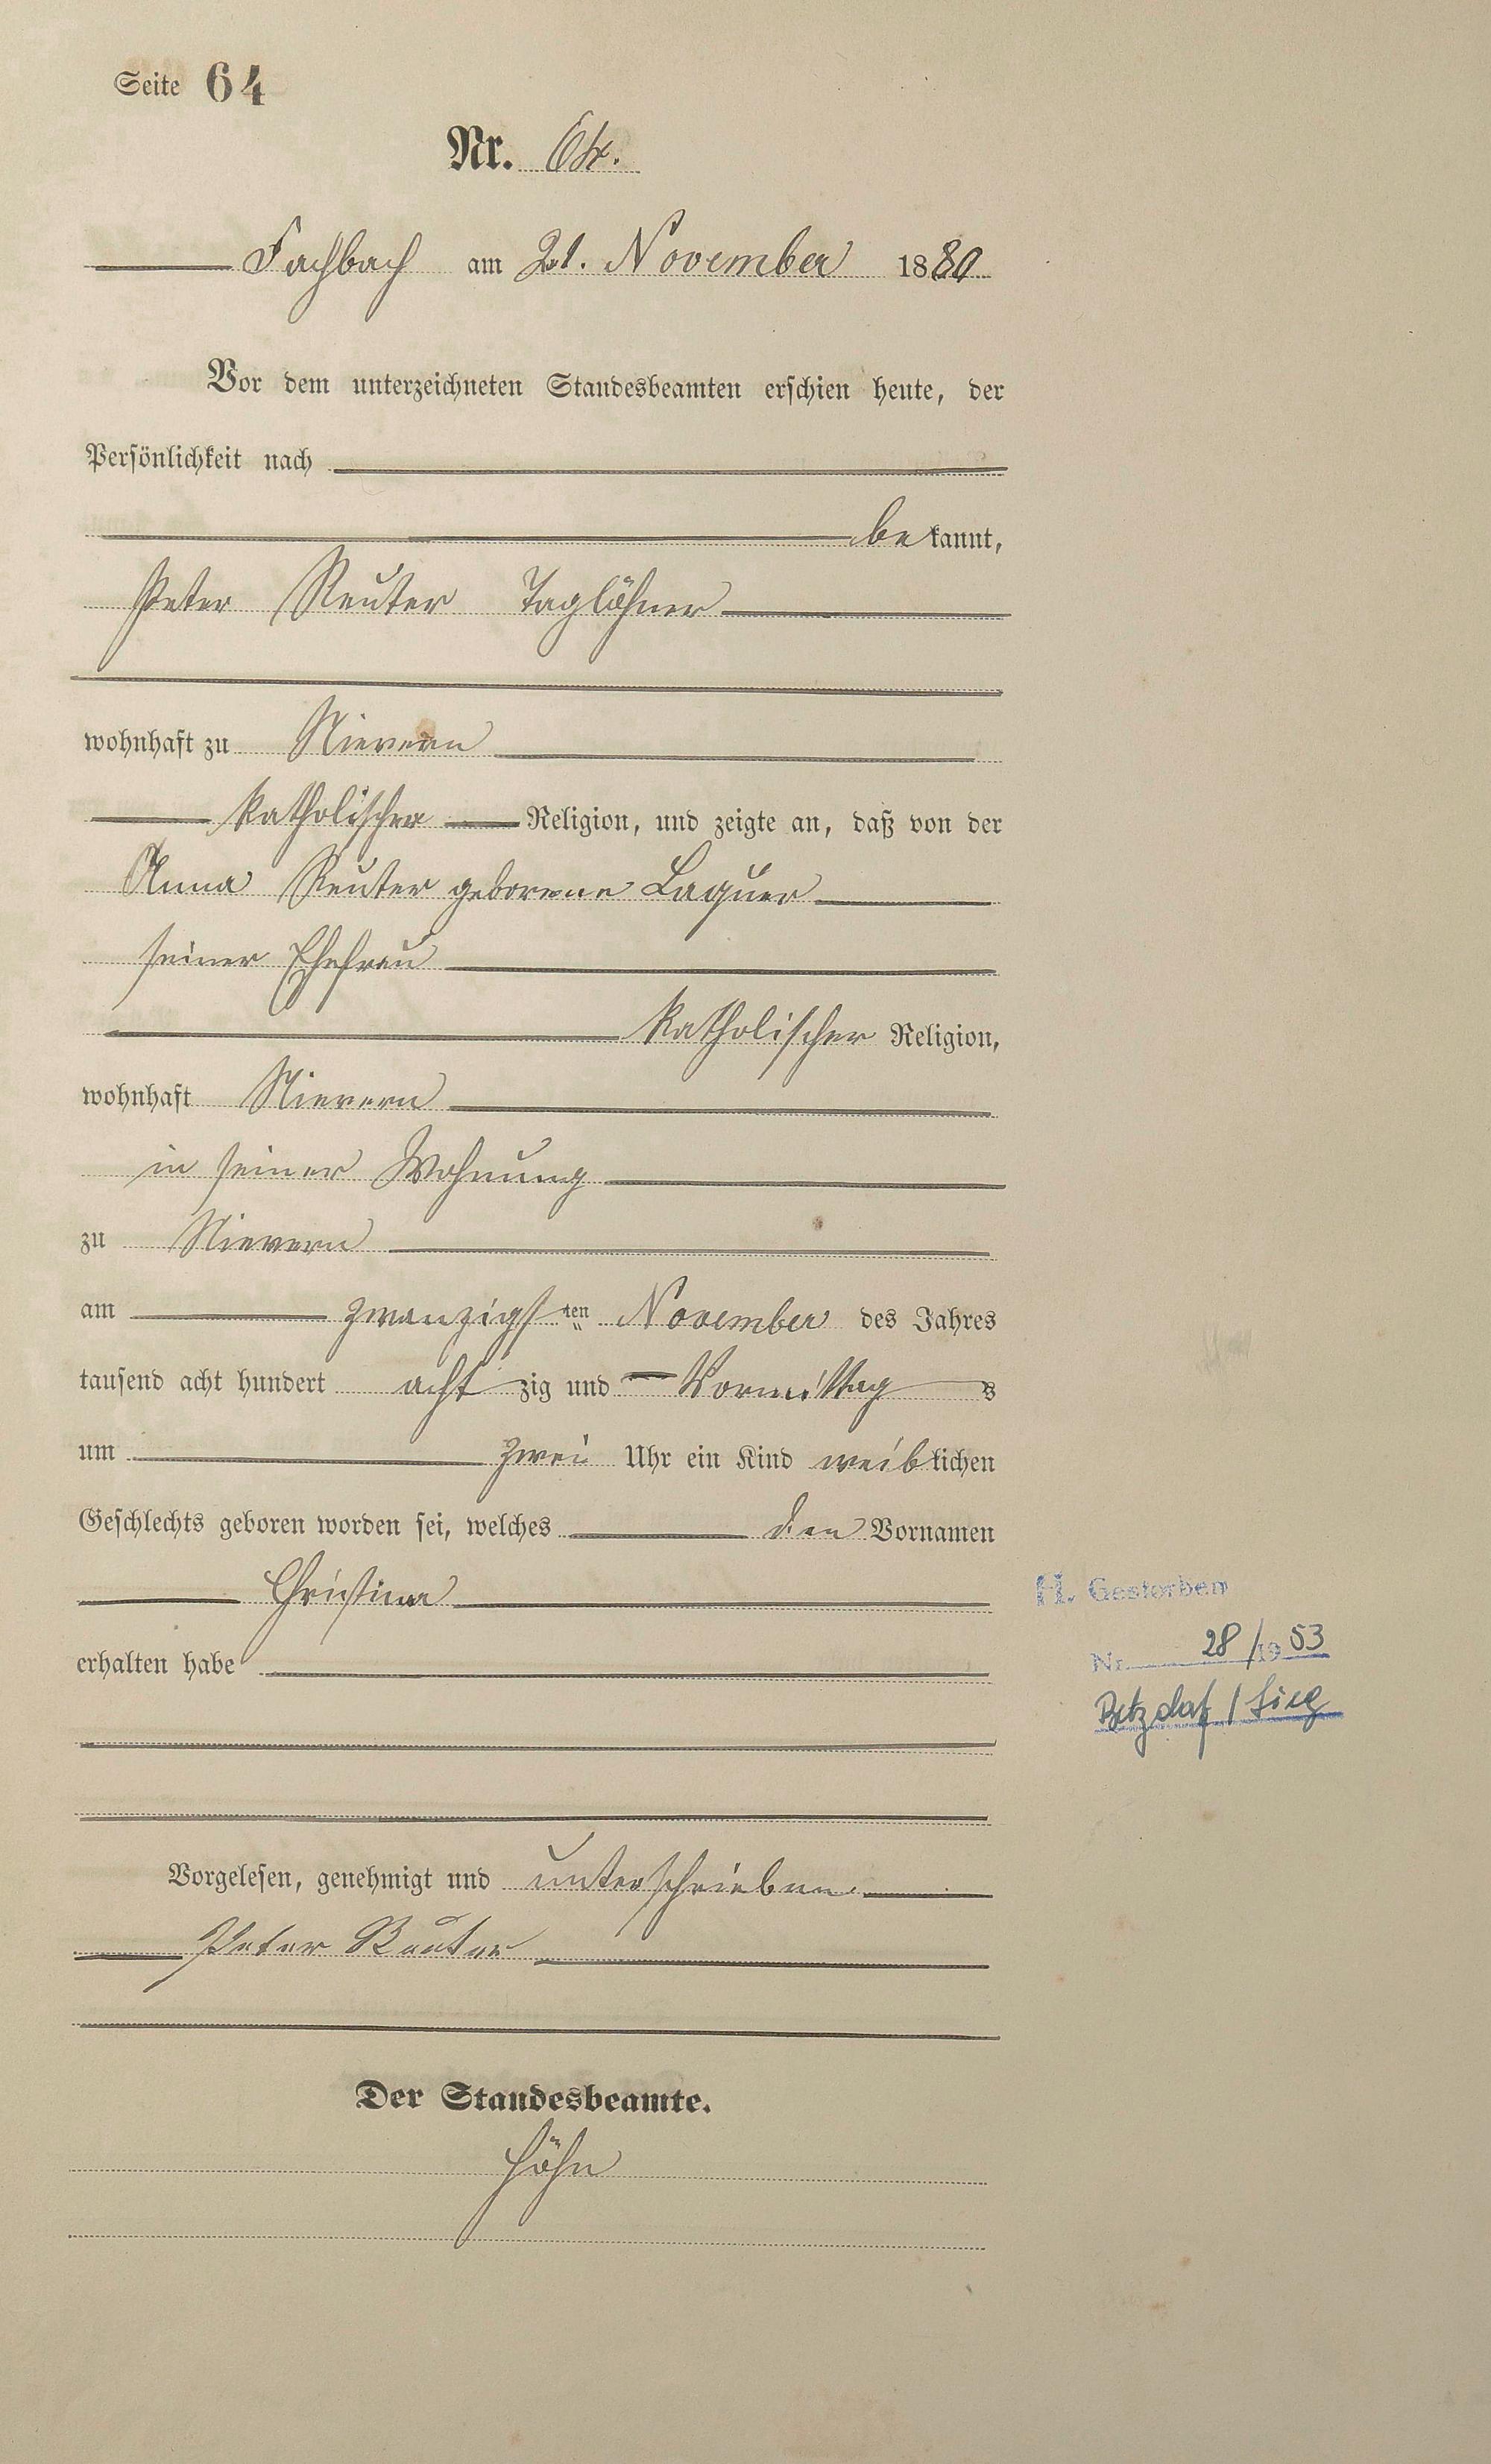 Seite 64
Nr. 64.
Fachbach am 21. November 1880
Vor dem unterzeichneten Standesbeamten erschien heute, der
Persönlichkeit nach
bekannt,
Peter Reuter Taglöhner
wohnhaft zu Nievern
katholischer Religion, und zeigte an, daß von der
Anna Reuter geborene Laquer
seiner Ehefrau
katholischer Religion,
wohnhaft Nievern
in seiner Wohnung
zu Nievern
am zwanzigsten November des Jahres
tausend acht hundert achtzig und Vormittags
um zwei Uhr ein Kind weiblichen
Geschlechts geboren worden sei, welches den Vornamen
Christina
H. Gestorben
Nr. 28/1953
Betzdorf / Sieg
erhalten habe
Vorgelesen, genehmigt und unterschrieben.
Peter Reuter
Der Standesbeamte.
Höhn